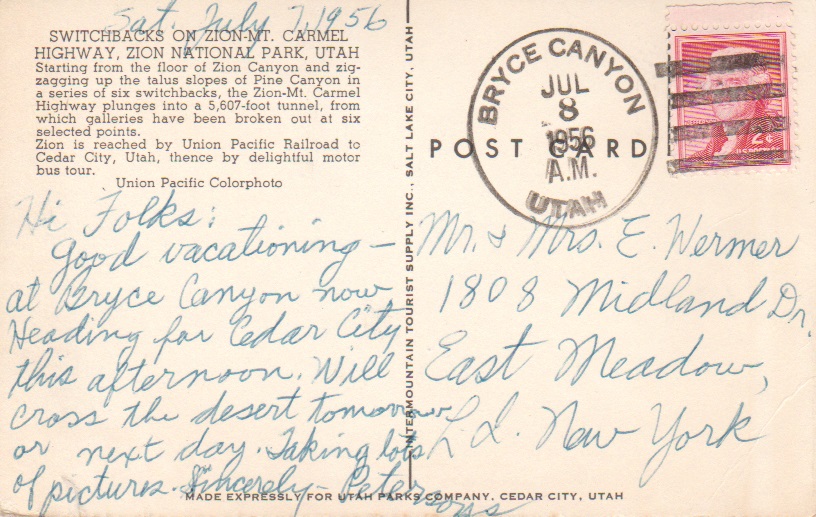 Sat. July 7, 1956
SWITCHBACKS ON ZION-MT. CARMEL
HIGHWAY, ZION NATIONAL PARK, UTAH
Starting from the floor of Zion Canyon and zig-
zagging up the talus slopes of Pine Canyon in
a series of six switchbacks, the Zion-Mt. Carmel
Highway plunges into a 5,607-foot tunnel, from
which galleries have been broken out at six
selected points.
Zion is reached by Union Pacific Railroad to
Cedar City, Utah, thence by delightful motor
bus tour.
Union Pacific Colorphoto
Hi Folks:
Good vacationing —
at Bryce Canyon now
Heading for Cedar City
this afternoon. Will
cross the desert tomorrow
or next day. Taking lots
of pictures. Sincerely - Petersons
INTERMOUNTAIN TOURIST SUPPLY INC., SALT LAKE CITY, UTAH
POST CARD
BRYCE CANYON
JUL
8
1956
A.M.
UTAH
2¢
Mr. & Mrs. E. Wermer
1808 Midland Dr.
East Meadow,
L. I. New York
MADE EXPRESSLY FOR UTAH PARKS COMPANY, CEDAR CITY, UTAH